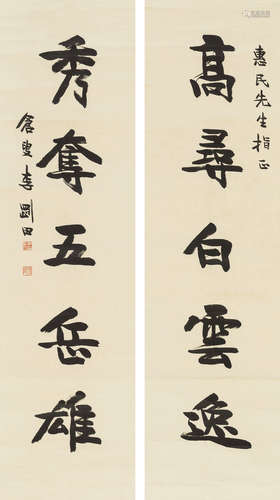 惠民先生指正
高尋白雲逸
秀奪五岳雄
倉叟李剛田